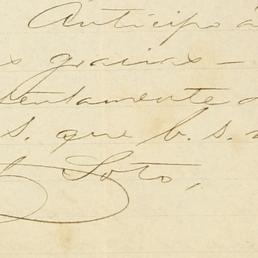 Anticipo á
s gracias —
tentamente
S. que b. s.
Soto,